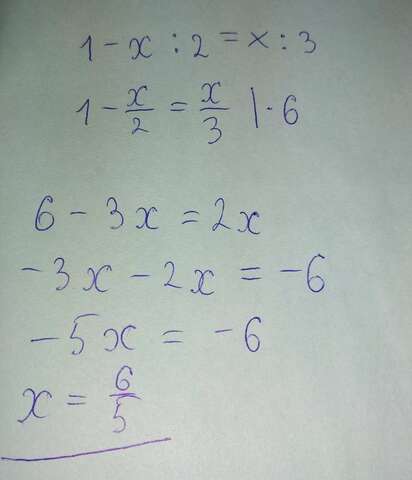 1 - x : 2 = x : 3
1 - x/2 = x/3 | · 6
6 - 3x = 2x
-3x - 2x = -6
-5x = -6
x = 6/5